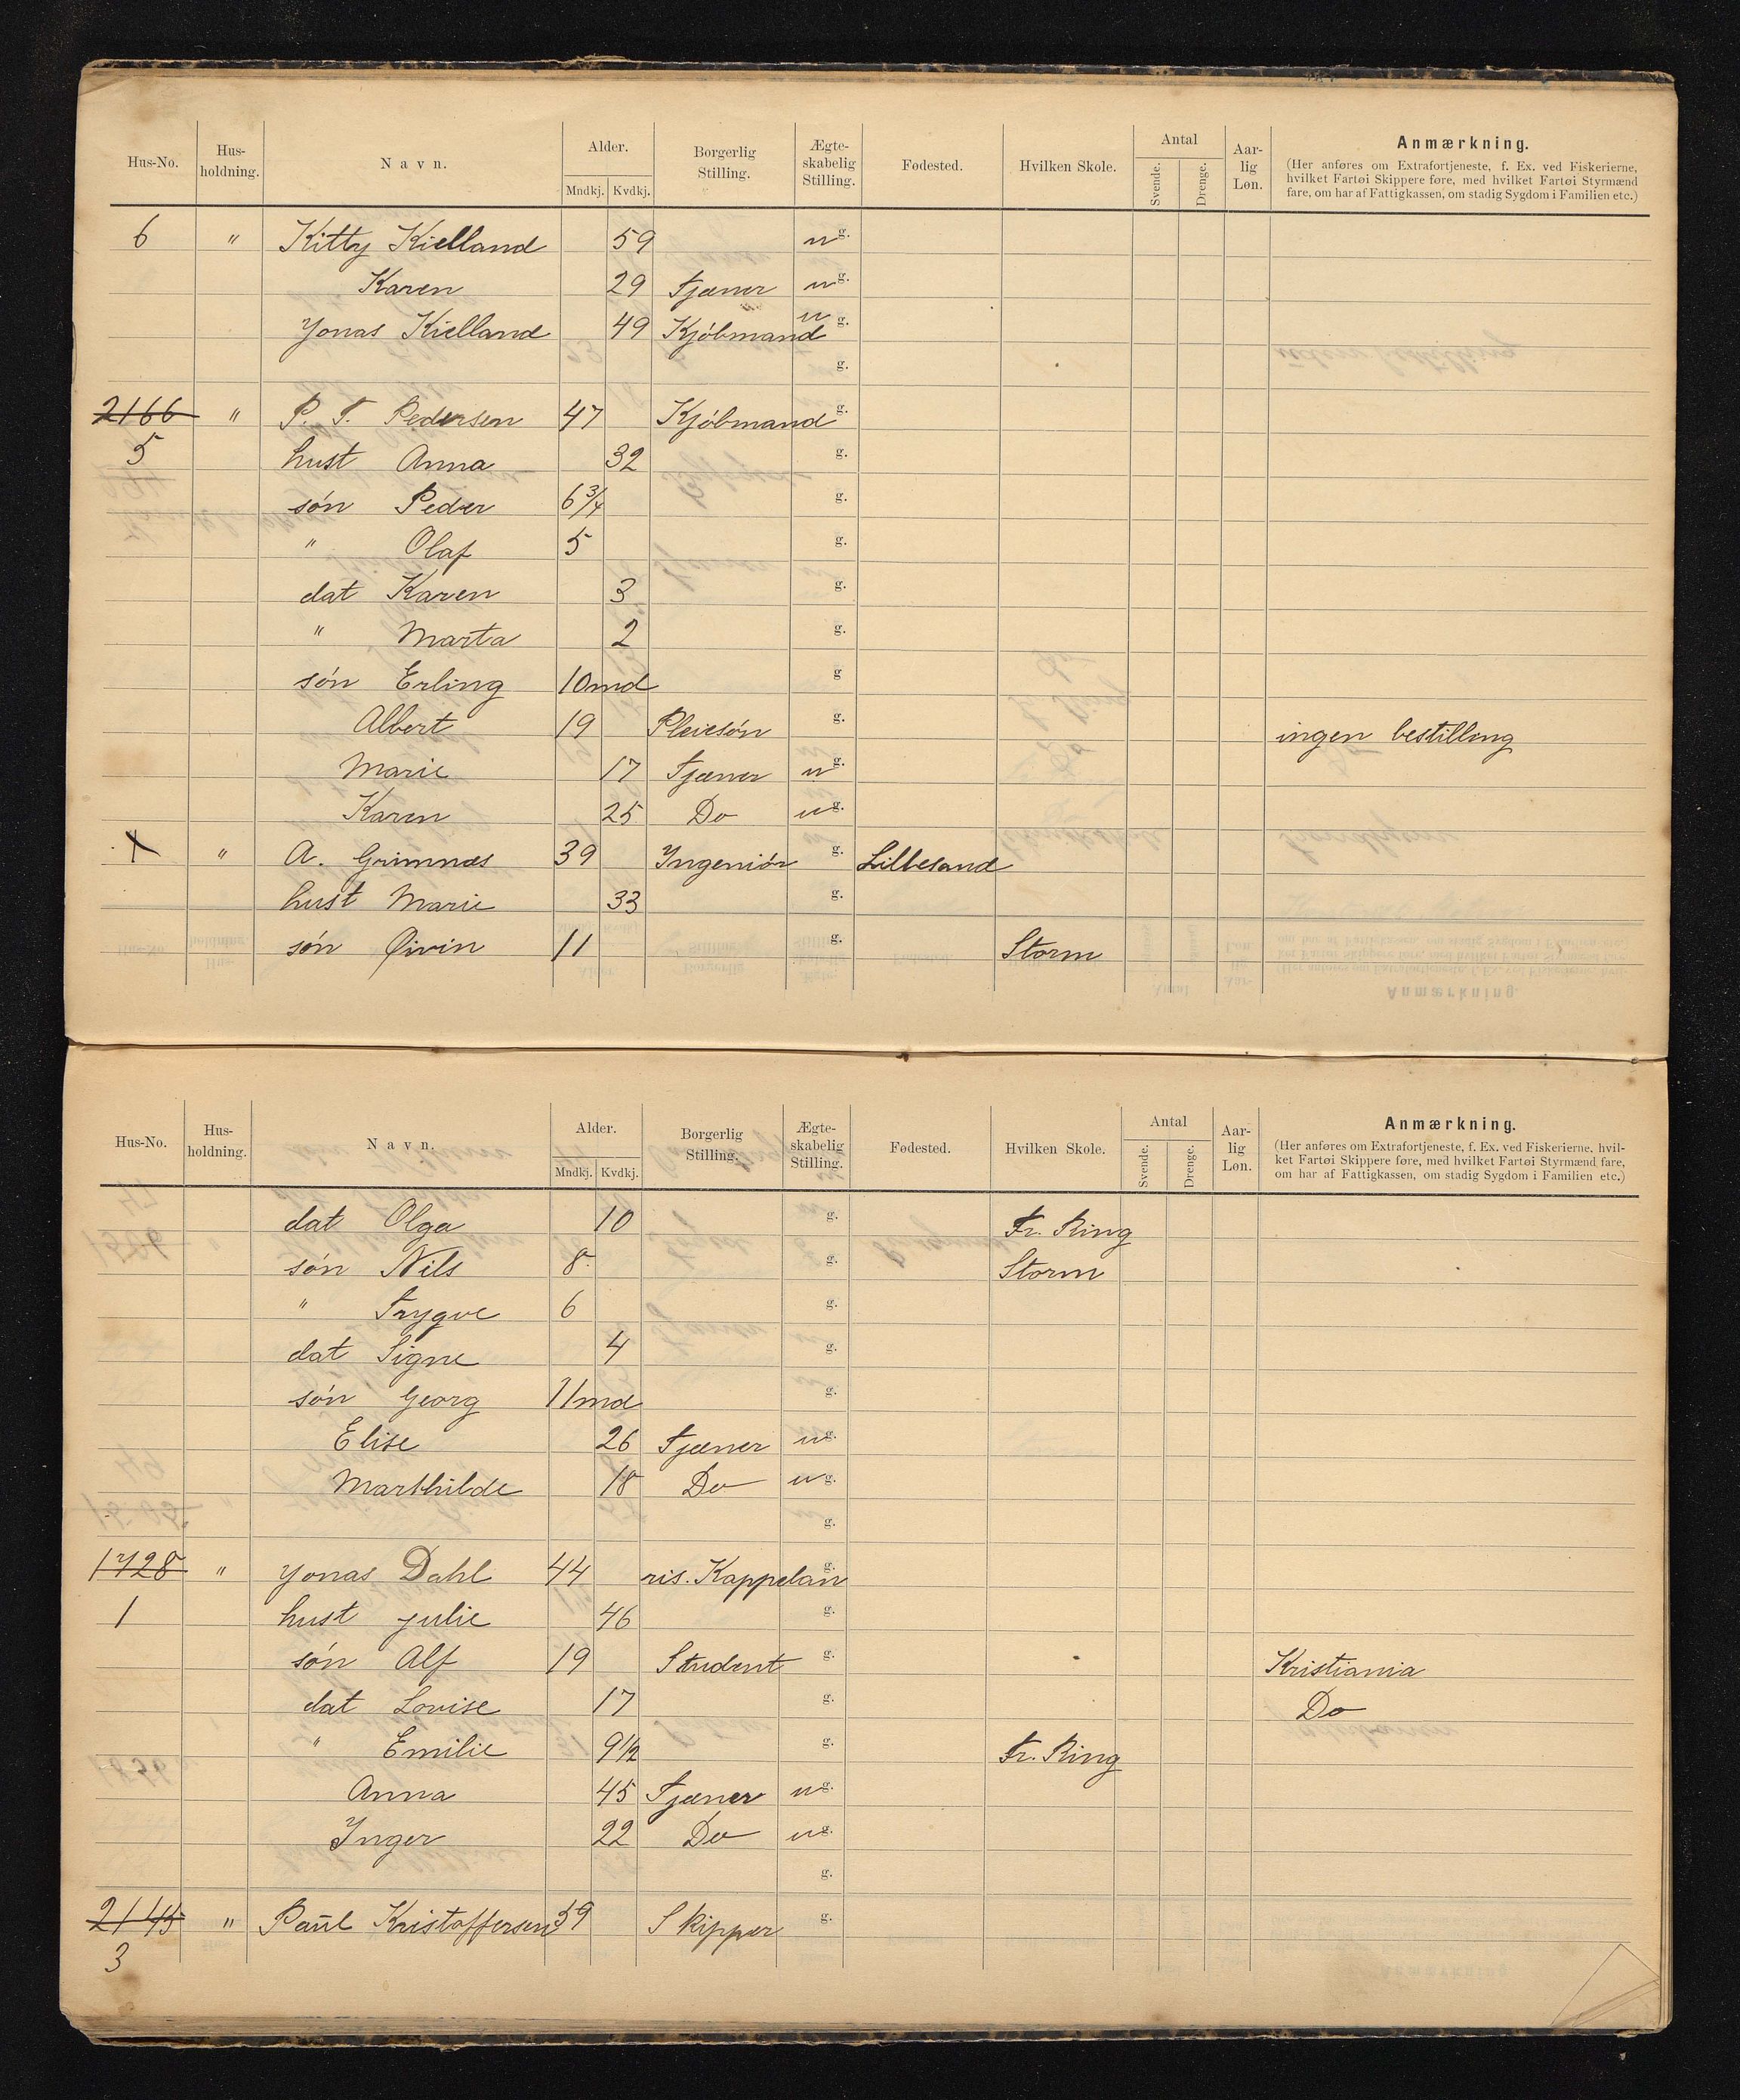 Hus-No. Hus-holdning. Navn. Alder. Mndkj. Kvdkj. Borgerlig Stilling. Ægte-skabelig Stilling. Fødested. Hvilken Skole. Antal Svende. Drenge. Aar-lig Løn. Anmærkning.
(Her anføres om Extrafortjeneste, f. Ex. ved Fiskerierne,
hvilket Fartøi Skippere føre, med hvilket Fartøi Styrmænd
fare, om har af Fattigkassen, om stadig Sygdom i Familien etc.)
6 " Kitty Kielland 59 u g.
Karen 29 Tjæner u g.
Jonas Kielland 49 Kjøbmand u g.
g.
2166 " P. T. Pedersen 47 Kjøbmand g.
5 hust Anna 32 g.
søn Peder 6 3/4 g.
" Olaf 5 g.
dat Karen 3 g.
" Marta 2 g.
søn Erling 10md g
Albert 19 Pleiesøn g. ingen bestilling
Marie 17 Tjæner u g.
Karen 25 Do u g.
" A. Grimnæs 39 Ingeniør g. Lillesand
hust Marie 33 g.
søn Øivin 11 g. Storm
Hus-No. Hus-holdning. Navn. Alder. Mndkj. Kvdkj. Borgerlig Stilling. Ægte-skabelig Stilling. Fødested. Hvilken Skole. Antal Svende. Drenge. Aar-lig Løn. Anmærkning.
(Her anføres om Extrafortjeneste, f. Ex. ved Fiskerierne, hvil-
ket Fartøi Skippere føre, med hvilket Fartøi Styrmænd fare,
om har af Fattigkassen, om stadig Sygdom i Familien etc.)
dat Olga 10 g. Fr. Ring
søn Nils 8 g. Storm
" Trygve 6 g.
dat Signe 4 g.
søn Georg 11md g.
Elise 26 Tjæner u g.
Marthilde 18 Do u g.
g.
1728 " Jonas Dahl 44 ris. Kappelan g.
1 hust Julie 46 g.
søn Alf 19 Student g. Kristiania
dat Lovise 17 g. Do
" Emilie 9 1/2 g. Fr. Ring
Anna 45 Tjæner u g.
Inger 22 Do u g.
g.
2145 " Paul Kristoffersen 59 Skipper g.
3